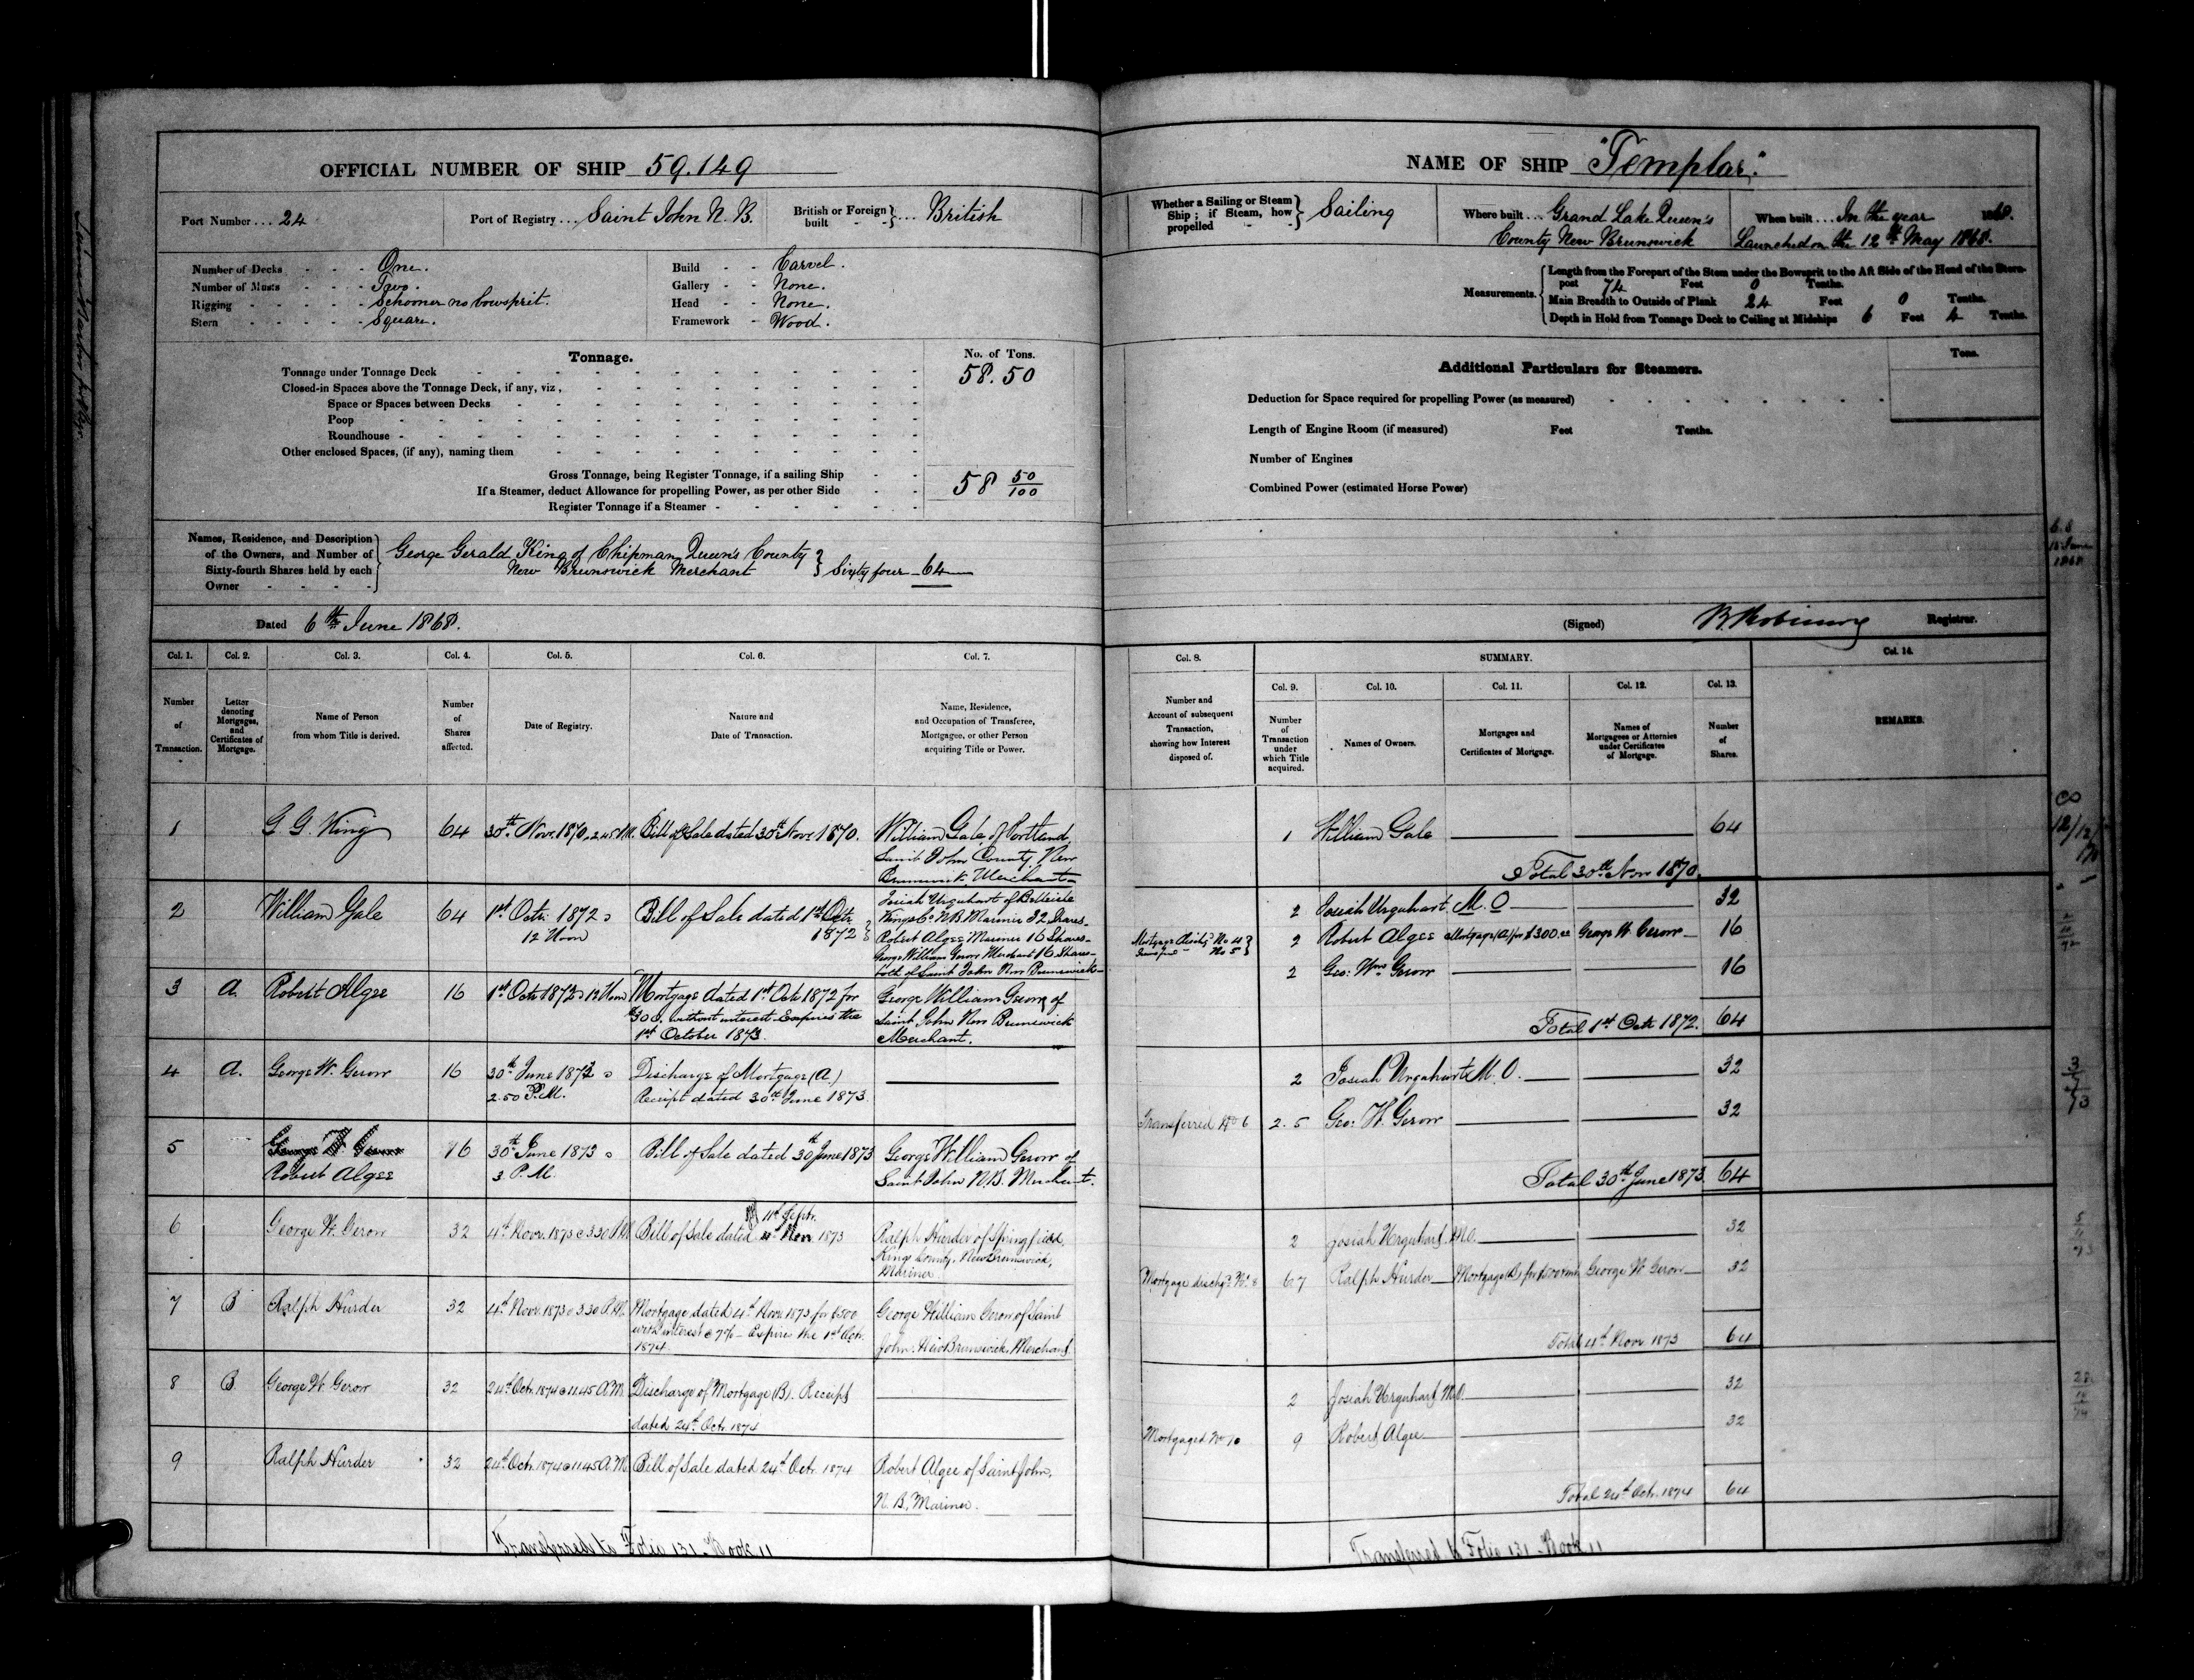 OFFICIAL NUMBER OF SHIP 59.149
Port Number ... 24
Port of Registry ... Saint John N. B.
British or Foreign built - - } ... British
Number of Decks - - - One.
Number of Masts - - - Two.
Rigging - - - - - Schooner no bowsprit.
Stern - - - - - Square.
Build - - Carvel.
Gallery - - None.
Head - - None.
Framework - Wood.
Tonnage.
No. of Tons.
Tonnage under Tonnage Deck 58.50
Closed-in Spaces above the Tonnage Deck, if any, viz.,
Space or Spaces between Decks
Poop
Roundhouse
Other enclosed Spaces, (if any), naming them
Gross Tonnage, being Register Tonnage, if a sailing Ship
If a Steamer, deduct Allowance for propelling Power, as per other Side
58 50/100
Register Tonnage if a Steamer
Names, Residence, and Description
of the Owners, and Number of
Sixty-fourth Shares held by each
Owner
George Gerald King of Chipman, Queen's County
New Brunswick Merchant } Sixty four 64
Dated 6th June 1868.
Col. 1. Col. 2. Col. 3. Col. 4. Col. 5. Col. 6. Col. 7.
Number of Transaction.
Letter denoting Mortgages, and Certificates of Mortgage.
Name of Person from whom Title is derived.
Number of Shares affected.
Date of Registry.
Nature and Date of Transaction.
Name, Residence, and Occupation of Transferee, Mortgagee, or other Person acquiring Title or Power.
1 G G. King 64 30th Nov. 1870, 2.45 P.M. Bill of Sale dated 30th Nov 1870. William Gale, of Portland,
Saint John County, New
Brunswick, Merchant
2 William Gale 64 1st Octr. 1872 @ Bill of Sale dated 1st Octr Josiah Urquhart of Belleisle
12 Noon 1872 } Kings Co N B Mariner 32 Shares
Robert Algee Mariner 16 Shares
George William Gerow Merchant 16 Shares
both of Saint John New Brunswick
3 A. Robert Algee 16 1st Octr 1872 @ 12 Noon Mortgage dated 1st Octr 1872 for George William Gerow of
$300. without interest. Expires the Saint John New Brunswick
1st October 1873. Merchant.
4 A. George W. Gerow 16 30th June 1873 @ Discharge of Mortgage (A.)
2.50 P.M. Receipt dated 30th June 1873.
5 George W. Gerow 16 30th June 1873 @ Bill of Sale dated 30th June 1873 George William Gerow of
Robert Algee 3 P.M. Saint John N.B. Merchant.
11th Septr.
6 George W. Gerow 32 4th Novr. 1873 @ 3.30 P.M. Bill of Sale dated 4th Nov 1873 Ralph Hurder of Springfield,
Kings County, New Brunswick,
Mariner
7 B Ralph Hurder 32 4th Novr. 1873 @ 3.30 P.M. Mortgage dated 4th Novr. 1873 for $500 George William Gerow of Saint
with interest @ 7% - Expires the 1st Octr. John, New Brunswick, Merchant
1874.
8 B George W. Gerow 32 24th Octr. 1874 @ 11.45 A.M. Discharge of Mortgage (B). Receipt
dated 24th Octr. 1874
9 Ralph Hurder 32 24th Octr. 1874 @ 11.45 A.M. Bill of Sale dated 24th Octr. 1874 Robert Algee of Saint John,
N. B., Mariner.
Transferred to Folio 131 Book 11
NAME OF SHIP "Templar."
Whether a Sailing or Steam Ship; if Steam, how propelled - - } Sailing
Where built ... Grand Lake Queen's
County New Brunswick
When built ... In the year 1868.
Launched on the 12th May 1868.
Measurements.
Length from the Forepart of the Stem under the Bowsprit to the Aft Side of the Head of the Stern-
post 74 Feet 0 Tenths.
Main Breadth to Outside of Plank 24 Feet 0 Tenths.
Depth in Hold from Tonnage Deck to Ceiling at Midships 6 Feet 4 Tenths.
Additional Particulars for Steamers.
Tons.
Deduction for Space required for propelling Power (as measured)
Length of Engine Room (if measured) Feet Tenths.
Number of Engines
Combined Power (estimated Horse Power)
(Signed) Registrar.
Col. 8. SUMMARY. Col. 14.
Col. 9. Col. 10. Col. 11. Col. 12. Col. 13.
Number and Account of subsequent Transaction, showing how Interest disposed of.
Number of Transaction under which Title acquired.
Names of Owners.
Mortgages and Certificates of Mortgage.
Names of Mortgagees or Attornies under Certificates of Mortgage.
Number of Shares.
REMARKS.
1 William Gale 64
Total 30th Nov 1870.
2 Josiah Urquhart M. O 32
Mortgage Dischgd No 4 } 2 Robert Algee Mortgage (A) for $300.00 George W. Gerow 16
No 5 }
2 Geo: Wm Gerow 16
Total 1st Octr 1872. 64
2 Josiah Urquhart M. O. 32
Transferred No 6 2.5 Geo: W. Gerow 32
Total 30th June 1873. 64
2 Josiah Urquhart M.O. 32
Mortgage dischgd. No. 8 6 7 Ralph Hurder Mortgage (B) for $500 George W. Gerow 32
Total 4th Novr 1873 64
2 Josiah Urquhart M.O. 32
Mortgaged No. 10 9 Robert Algee 32
Total 24th Octr. 1874 64
Transferred to Folio 131 Book 11